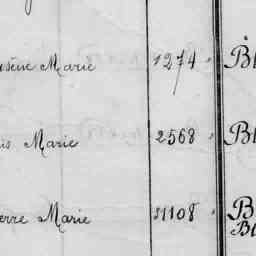 Marie 1274 Bl
is Marie 2568 Bl
erre Marie 31108 B
Bl